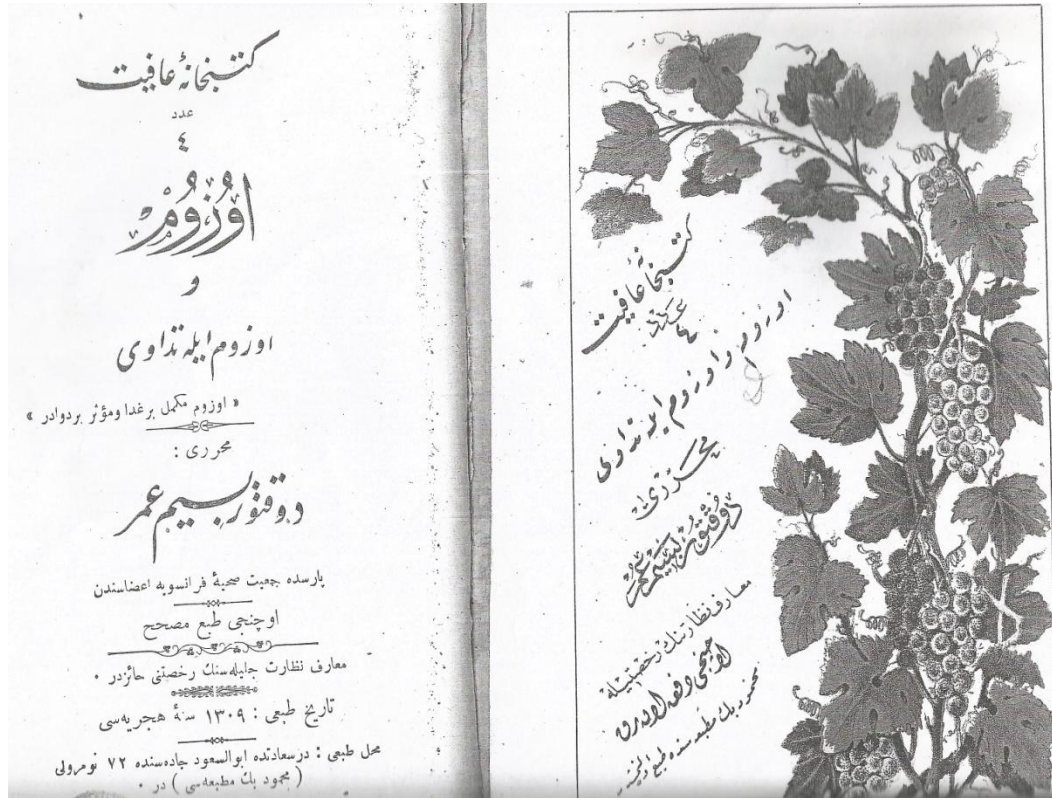 كتبخانهٔ عافیت
عدد
٤
اوُزوُمْ
و
اوزوم ایله تداوی
« اوزوم مكمل بر غدا و مؤثر بر دوادر »
محرری :
دوقتور بسیم عمر
پارسده جمعیت صحیهٔ فرانسویه اعضاسندن
اوچنجی طبع مصحح
معارف نظارت جلیله‌سنك رخصتنی حائزدر ٠
تاریخ طبعی : ١٣٠٩ سنهٔ هجریه‌سی
محل طبعی : درسعادتده ابوالسعود جاده‌سنده ٧٢ نومرولی
( محمود بك مطبعه‌سی ) در ٠
كتبخانهٔ عافیت
عدد
٤
اوزوم و اوزوم ایله تداوی
محرری
دوقتور بسیم عمر
معارف نظارتنك رخصتیله
اوچنجی دفعه اوله‌رق
محمود بك مطبعه‌سنده طبع اولنمشدر